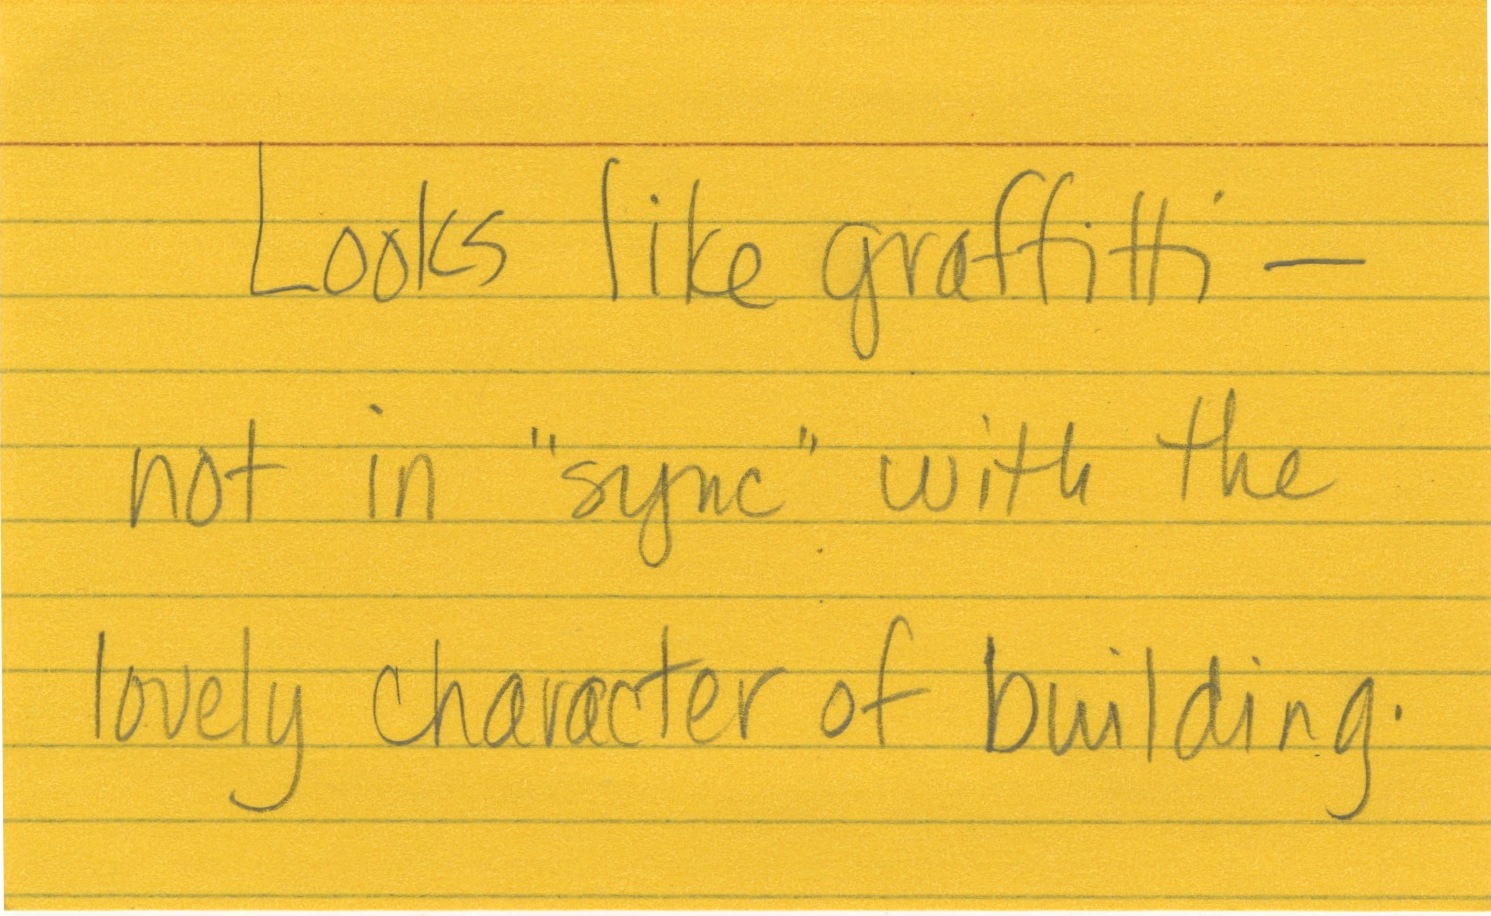 Looks like graffitti —
not in "sync" with the
lovely character of building.